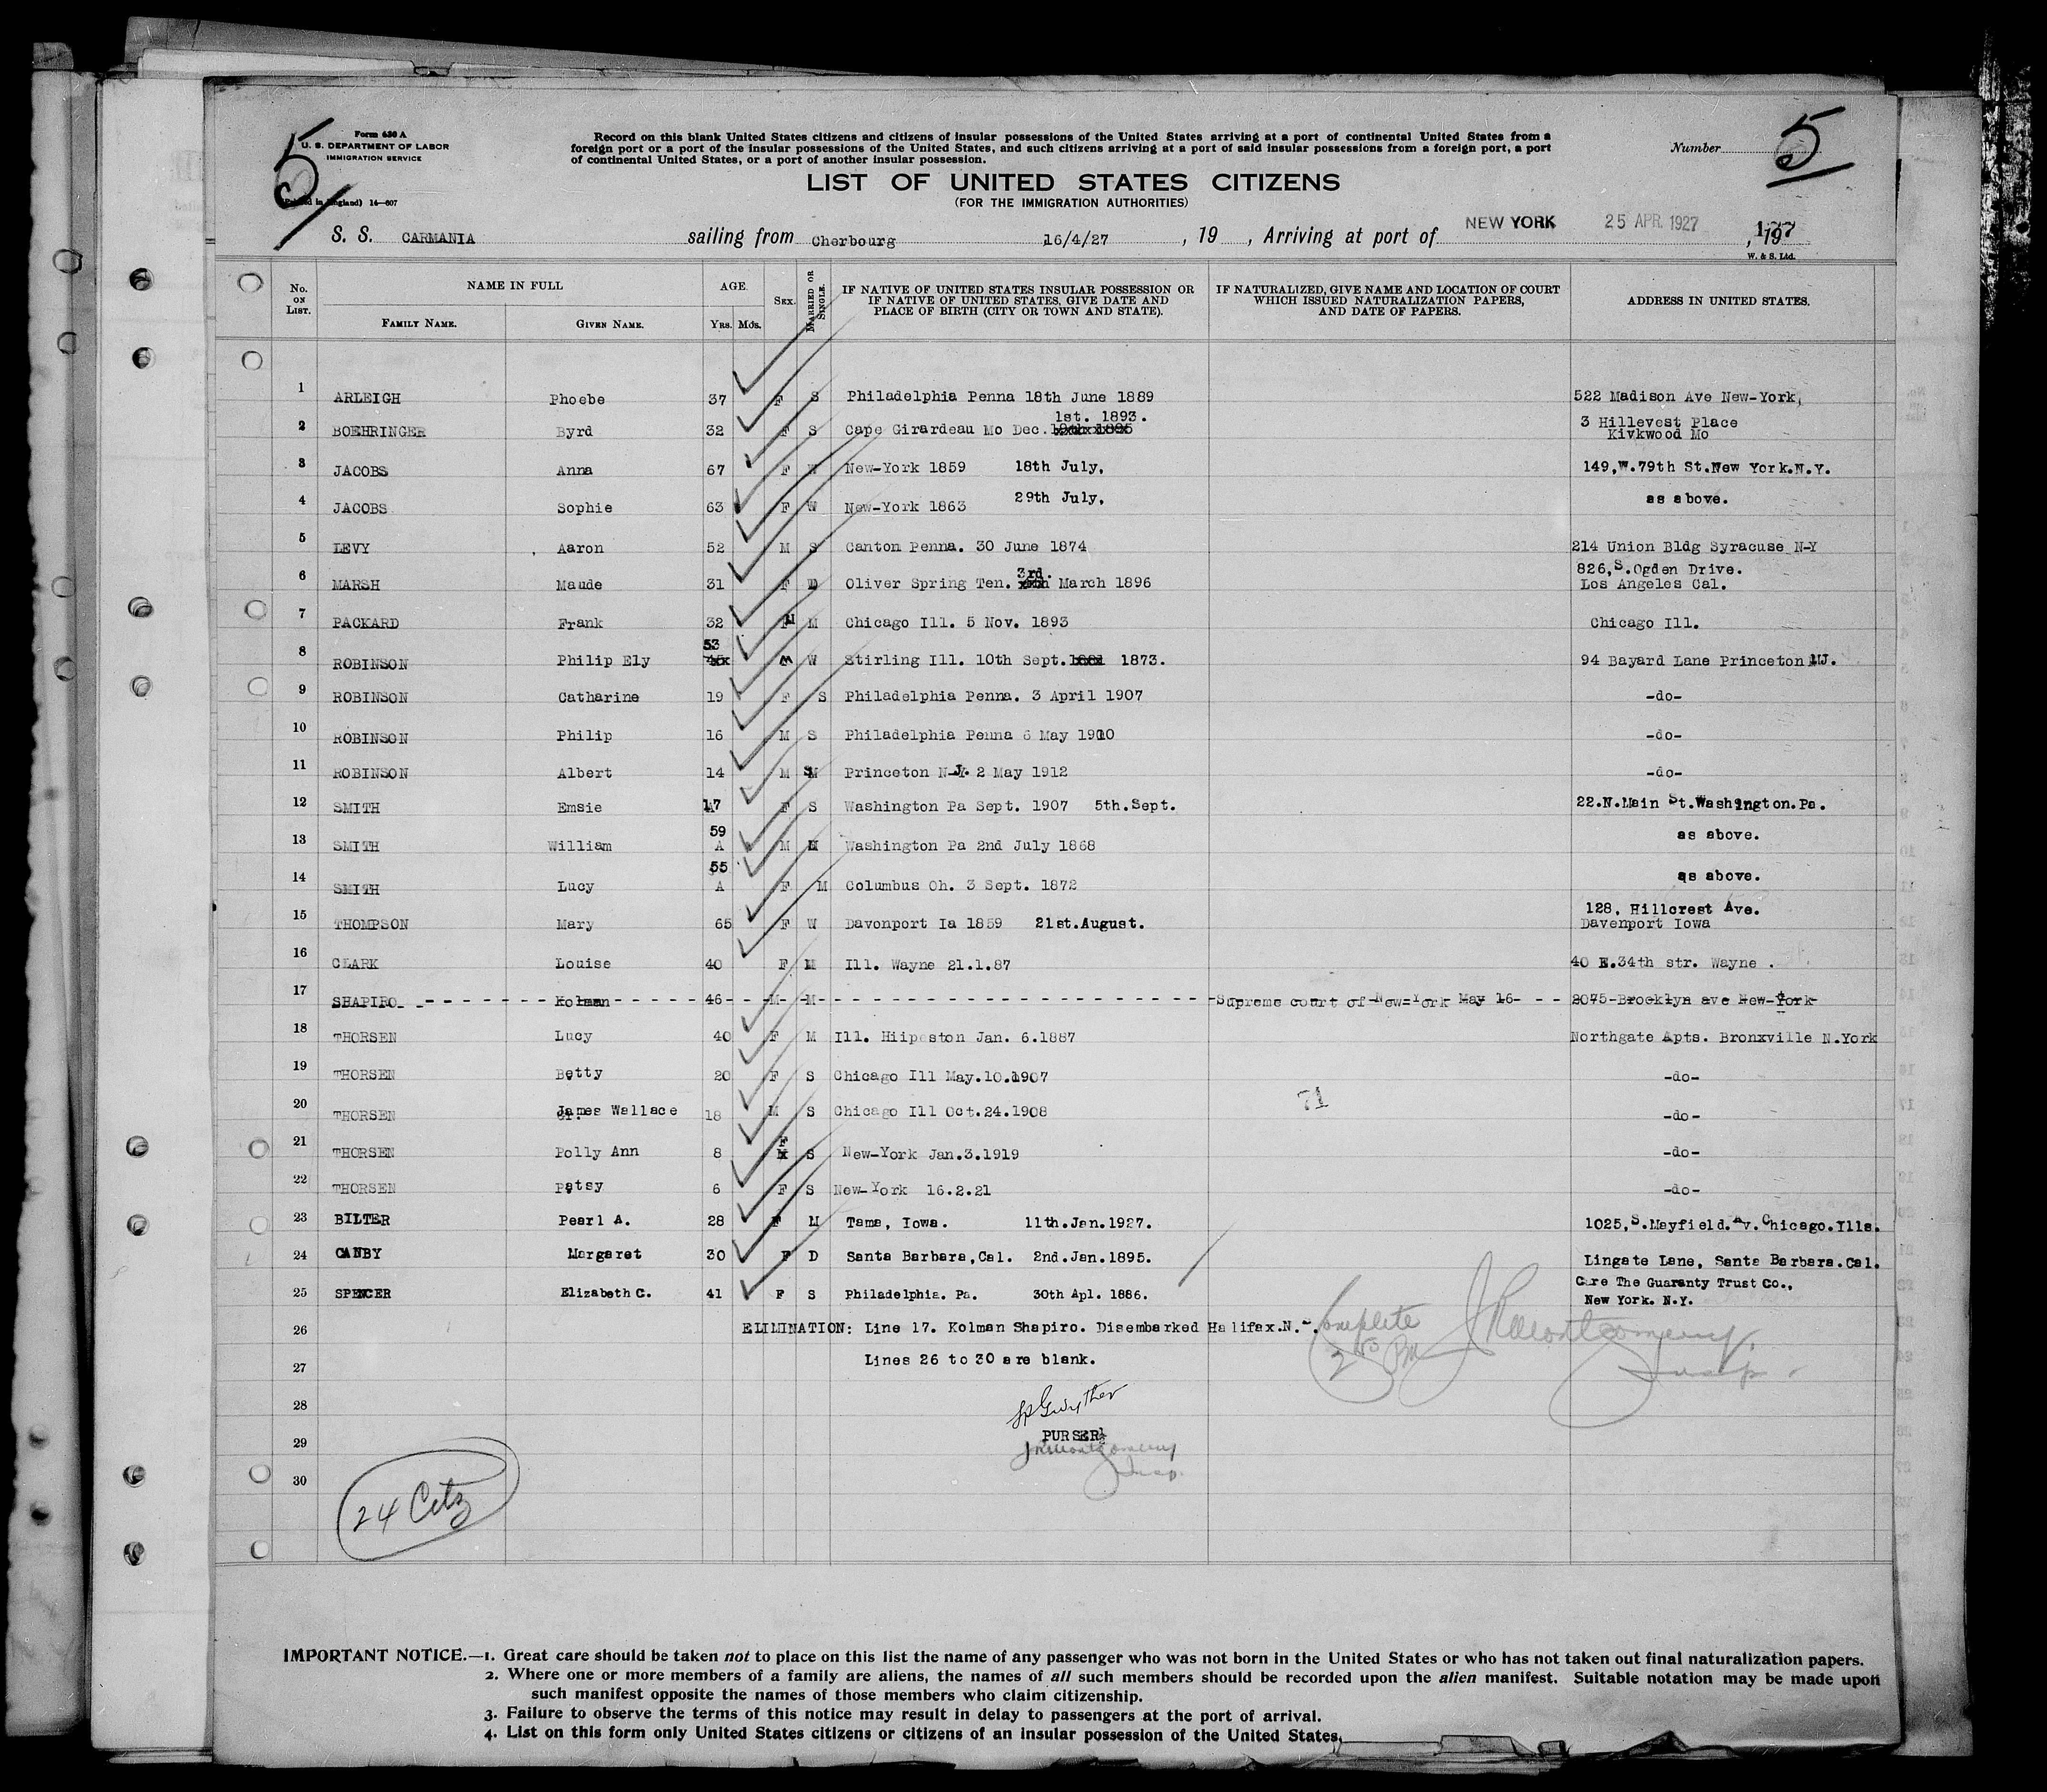 5
Form 630 A
U. S. DEPARTMENT OF LABOR
IMMIGRATION SERVICE
(Printed in England) 14—607
Record on this blank United States citizens and citizens of insular possessions of the United States arriving at a port of continental United States from a
foreign port or a port of the insular possessions of the United States, and such citizens arriving at a port of said insular possessions from a foreign port, a port
of continental United States, or a port of another insular possession.
Number 5
LIST OF UNITED STATES CITIZENS
(FOR THE IMMIGRATION AUTHORITIES)
S. S. CARMANIA sailing from Cherbourg 16/4/27 , 19 , Arriving at port of NEW YORK 25 APR. 1927 , 19
W. & S. Ltd.
No. ON LIST. NAME IN FULL AGE. SEX. MARRIED OR SINGLE. IF NATIVE OF UNITED STATES INSULAR POSSESSION OR IF NATIVE OF UNITED STATES, GIVE DATE AND PLACE OF BIRTH (CITY OR TOWN AND STATE). IF NATURALIZED, GIVE NAME AND LOCATION OF COURT WHICH ISSUED NATURALIZATION PAPERS, AND DATE OF PAPERS. ADDRESS IN UNITED STATES.
FAMILY NAME. GIVEN NAME. YRS. MOS.
1 ARLEIGH Phoebe 37 F S Philadelphia Penna 18th June 1889 522 Madison Ave New-York,
2 BOEHRINGER Byrd 32 F S Cape Girardeau Mo Dec. 1st. 1893. 3 Hillevest Place
Kivkwood Mo
3 JACOBS Anna 67 F W New-York 1859 18th July, 149,W.79th St.New York.N.Y.
4 JACOBS Sophie 63 F W New-York 1863 29th July, as above.
5 LEVY Aaron 52 M S Canton Penna. 30 June 1874 214 Union Bldg Syracuse N-Y
6 MARSH Maude 31 F D Oliver Spring Ten. 3rd. March 1896 826,S.Ogden Drive.
Los Angeles Cal.
7 PACKARD Frank 32 M M Chicago Ill. 5 Nov. 1893 Chicago Ill.
8 ROBINSON Philip Ely 53 M W Stirling Ill. 10th Sept. 1873. 94 Bayard Lane Princeton NJ.
9 ROBINSON Catharine 19 F S Philadelphia Penna. 3 April 1907 -do-
10 ROBINSON Philip 16 M S Philadelphia Penna 6 May 1910 -do-
11 ROBINSON Albert 14 M S Princeton N-J. 2 May 1912 -do-
12 SMITH Emsie 17 F S Washington Pa Sept. 1907 5th.Sept. 22.N.Main St.Washington.Pa.
13 SMITH William 59 A M M Washington Pa 2nd July 1868 as above.
14 SMITH Lucy 55 A F M Columbus Oh. 3 Sept. 1872 as above.
15 THOMPSON Mary 65 F W Davonport Ia 1859 21st.August. 128, Hillcrest Ave.
Davenport Iowa
16 CLARK Louise 40 F M Ill. Wayne 21.1.87 40 E.34th str. Wayne .
17 SHAPIRO Kolman 46 M M Supreme court of New-York May 16 2075 Brooklyn ave New-York
18 THORSEN Lucy 40 F M Ill. Hiipeston Jan. 6.1887 Northgate Apts. Bronxville N.York
19 THORSEN Betty 20 F S Chicago Ill May.10.1907 -do-
20 THORSEN James Wallace 18 M S Chicago Ill Oct.24.1908 -do-
71
21 THORSEN Polly Ann 8 F S New-York Jan.3.1919 -do-
22 THORSEN Patsy 6 F S New-York 16.2.21 -do-
23 BILTER Pearl A. 28 F M Tama, Iowa. 11th.Jan.1927. 1025,S.Mayfield.Av.Chicago.Ills.
24 CANBY Margaret 30 F D Santa Barbara,Cal. 2nd.Jan.1895. Lingate Lane, Santa Barbara.Cal.
25 SPENCER Elizabeth C. 41 F S Philadelphia. Pa. 30th Apl. 1886. Care The Guaranty Trust Co.,
New York. N.Y.
26 ELIMINATION: Line 17. Kolman Shapiro. Disembarked Halifax.N.S.
Complete
JRMontgomery
Insp.
27 Lines 26 to 30 are blank.
28
29 PURSER
JRMontgomery
Insp.
30
24 Citz
IMPORTANT NOTICE.—1. Great care should be taken not to place on this list the name of any passenger who was not born in the United States or who has not taken out final naturalization papers.
2. Where one or more members of a family are aliens, the names of all such members should be recorded upon the alien manifest. Suitable notation may be made upon
such manifest opposite the names of those members who claim citizenship.
3. Failure to observe the terms of this notice may result in delay to passengers at the port of arrival.
4. List on this form only United States citizens or citizens of an insular possession of the United States.